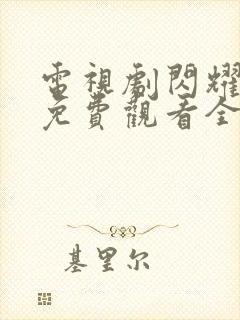 電視劇閃耀
免費觀看全
基里尔